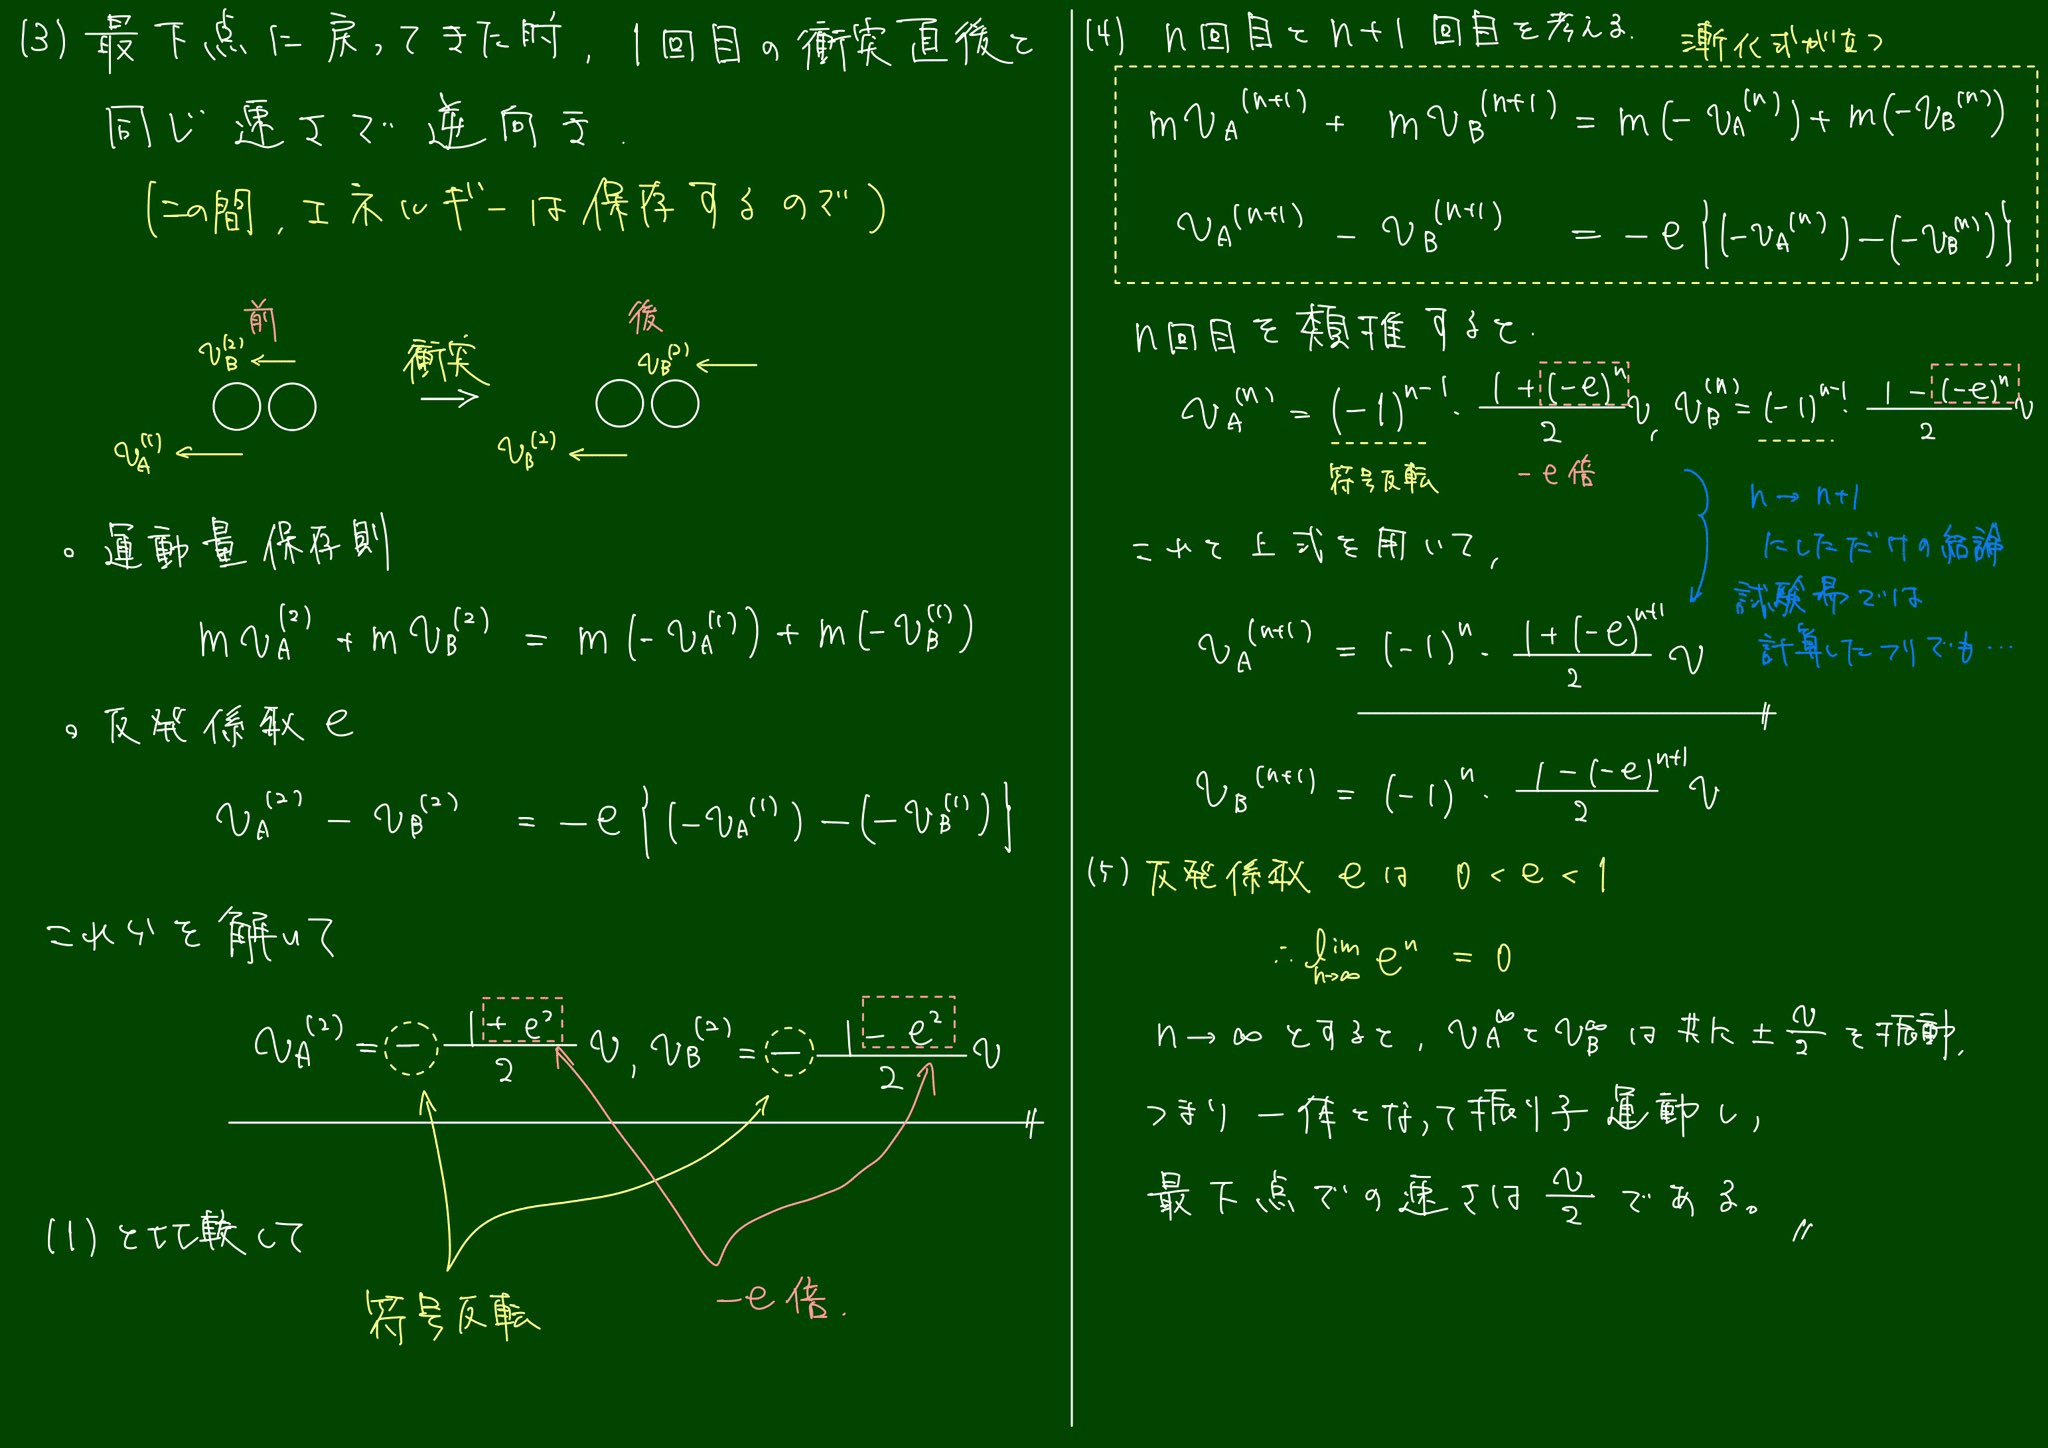 (3) 最下点に戻ってきた時, 1回目の衝突直後と
同じ速さで逆向き.
(この間, エネルギーは保存するので)
前
後
v_B^(2) ←
衝突
→
v_B^(2) ←
v_A^(1) ←
v_B^(2) ←
。運動量保存則
mv_A^(2) + mv_B^(2) = m(-v_A^(1)) + m(-v_B^(1))
。反発係数 e
v_A^(2) - v_B^(2) = -e{(-v_A^(1)) - (-v_B^(1))}
これらを解いて
v_A^(2) = - (1+e²)/2 v, v_B^(2) = - (1-e²)/2 v
(1)と比較して
符号反転
-e倍.
(4) n回目とn+1回目を考える.
漸化式が立つ
mv_A^(n+1) + mv_B^(n+1) = m(-v_A^(n)) + m(-v_B^(n))
v_A^(n+1) - v_B^(n+1) = -e{(-v_A^(n)) - (-v_B^(n))}
n回目を類推すると.
v_A^(n) = (-1)^(n-1)・(1+(-e)^n)/2 v, v_B^(n) = (-1)^(n-1)・(1-(-e)^n)/2 v
符号反転
-e倍
n→n+1
にしただけの結論
試験場では
計算したフリでも…
これと上式を用いて,
v_A^(n+1) = (-1)^n・(1+(-e)^(n+1))/2 v
v_B^(n+1) = (-1)^n・(1-(-e)^(n+1))/2 v
(5) 反発係数 e は 0<e<1
∴ lim_(n→∞) e^n = 0
n→∞とすると, v_A^∞とv_B^∞は共に±v/2を振動,
つまり一体となって振り子運動し,
最下点での速さはv/2である。〃